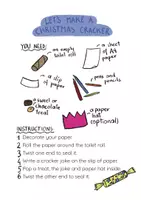 LET'S MAKE A
CHRISTMAS CRACKER
YOU NEED:
an empty
toilet roll
a sheet
of A4
paper
a slip
of
paper
pens and
pencils
a sweet or
chocolate
treat
a paper
hat
(optional)
INSTRUCTIONS:
1 Decorate your paper.
2 Roll the paper around the toilet roll.
3 Twist one end to seal it.
4 Write a cracker joke on the slip of paper.
5 Pop a treat, the joke and paper hat inside.
6 Twist the other end to seal it.